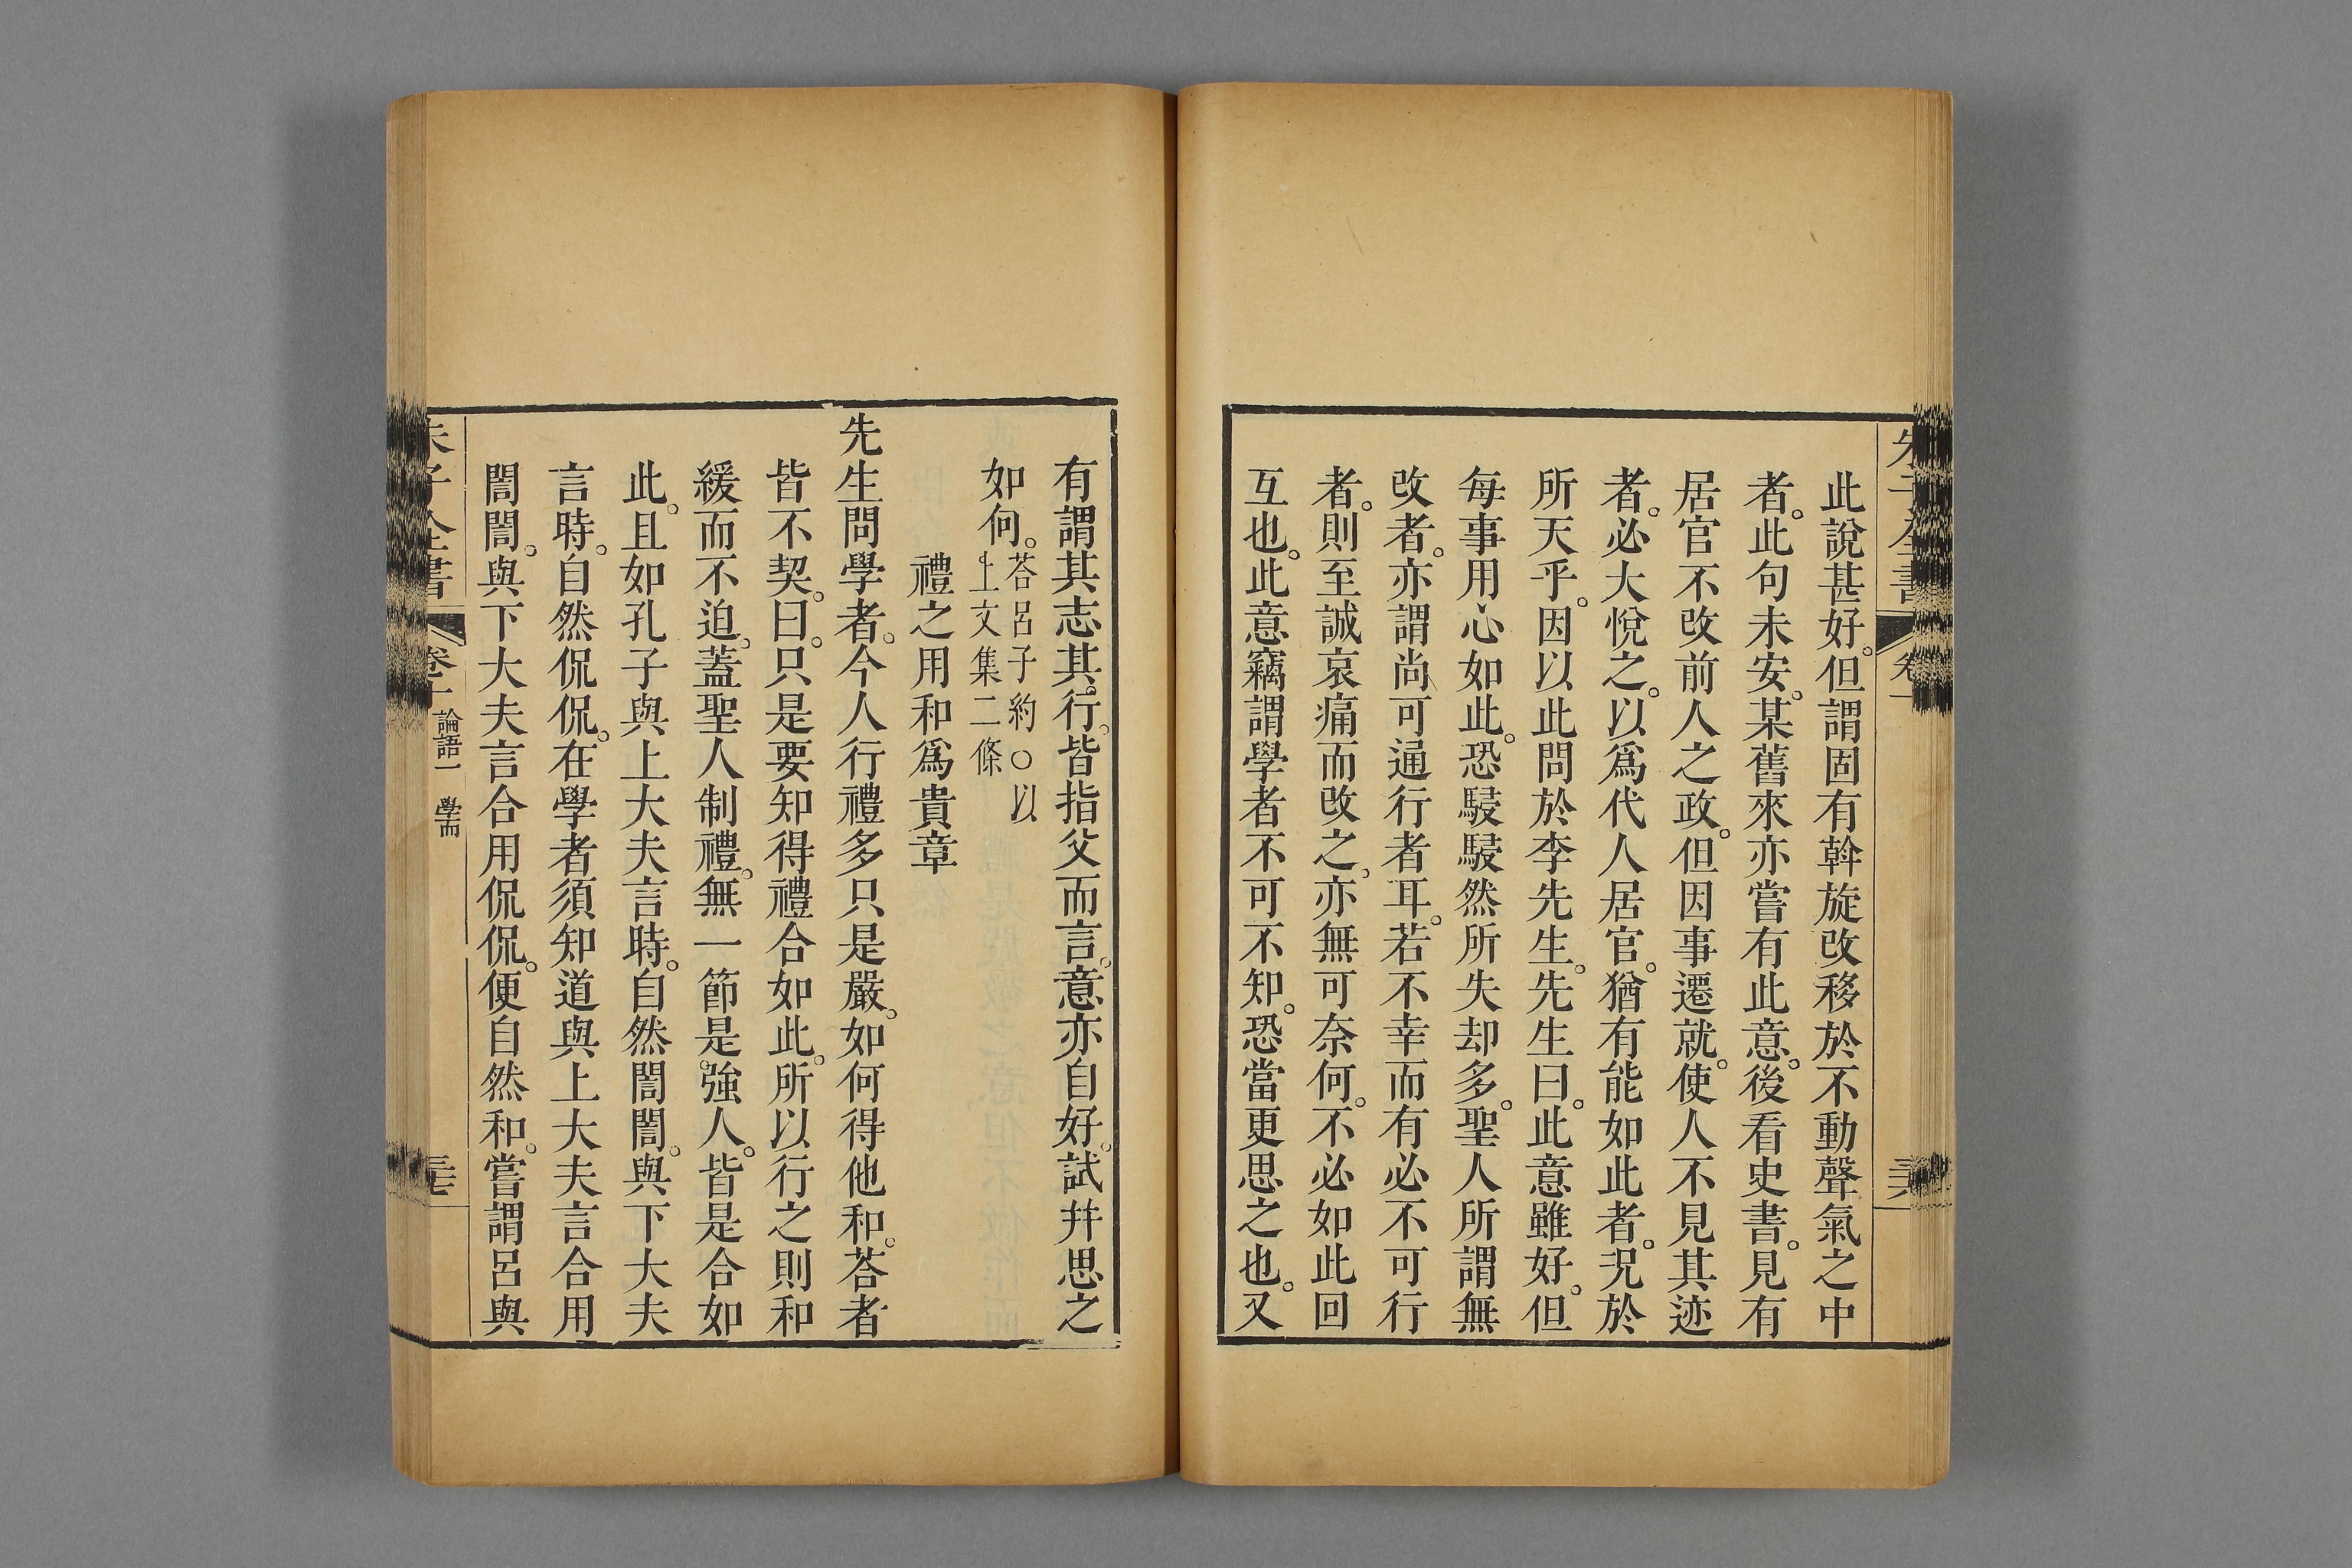 此說甚好。但謂固有斡旋改移於不動聲氣之中
者。此句未安。某舊來亦嘗有此意。後看史書。見有
居官不改前人之政。但因事遷就。使人不見其迹
者。必大悅之。以爲代人居官。猶有能如此者。況於
所天乎。因以此問於李先生。先生曰。此意雖好。但
每事用心如此。恐駸駸然所失却多。聖人所謂無
改者。亦謂尚可通行者耳。若不幸而有必不可行
者。則至誠哀痛而改之。亦無可奈何。不必如此回
互也。此意竊謂學者不可不知。恐當更思之也。又
有謂其志其行。皆指父而言。意亦自好。試幷思之
如何。荅呂子約○以
上文集二條
禮之用和爲貴章
先生問學者。今人行禮多只是嚴。如何得他和。荅者
皆不契。曰。只是要知得禮合如此。所以行之則和
緩而不迫。蓋聖人制禮。無一節是强人。皆是合如
此。且如孔子與上大夫言時。自然誾誾。與下大夫
言時。自然侃侃。在學者須知道與上大夫言合用
誾誾。與下大夫言合用侃侃。便自然和。嘗謂呂與
朱子全書
卷十
論語一 學而